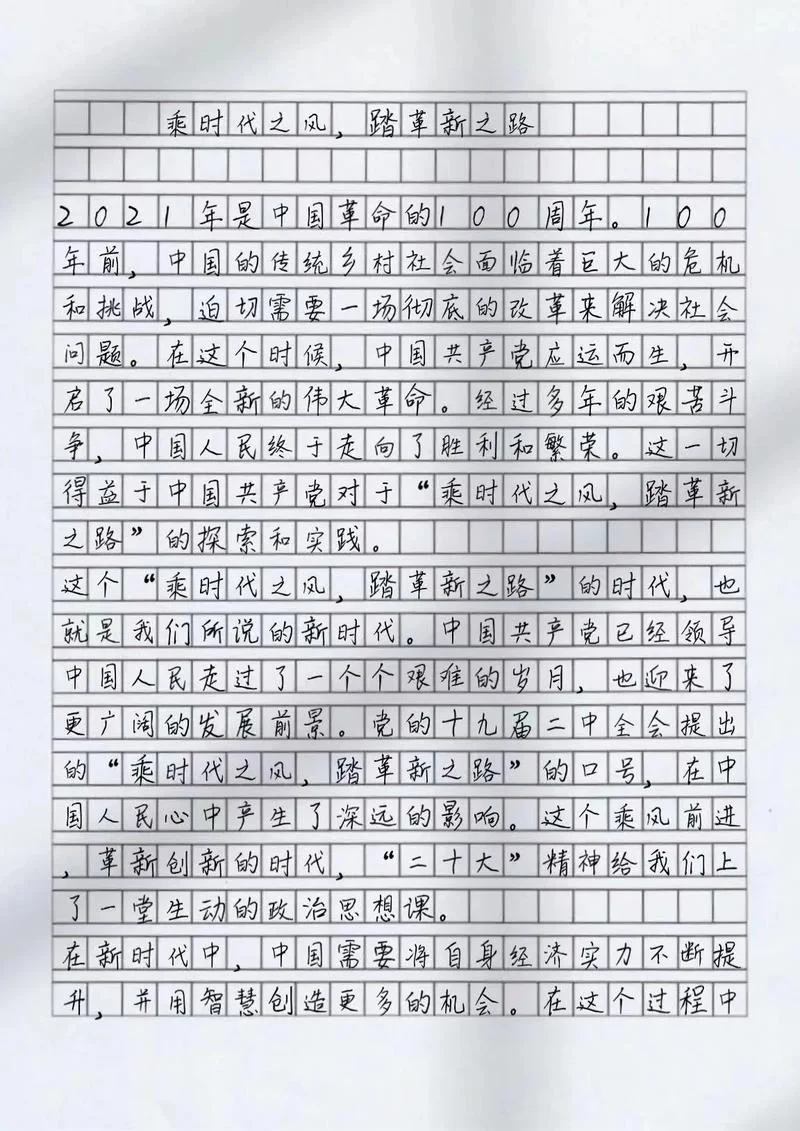 乘时代之风，踏革新之路
2021年是中国革命的100周年。100
年前，中国的传统乡村社会面临着巨大的危机
和挑战，迫切需要一场彻底的改革来解决社会
问题。在这个时候，中国共产党应运而生，开
启了一场全新的伟大革命。经过多年的艰苦斗
争，中国人民终于走向了胜利和繁荣。这一切
得益于中国共产党对于“乘时代之风，踏革新
之路”的探索和实践。
这个“乘时代之风，踏革新之路”的时代，也
就是我们所说的新时代。中国共产党已经领导
中国人民走过了一个个艰难的岁月，也迎来了
更广阔的发展前景。党的十九届二中全会提出
的“乘时代之风，踏革新之路”的口号，在中
国人民心中产生了深远的影响。这个乘风前进
，革新创新的时代，“二十大”精神给我们上
了一堂生动的政治思想课。
在新时代中，中国需要将自身经济实力不断提
升，并用智慧创造更多的机会。在这个过程中